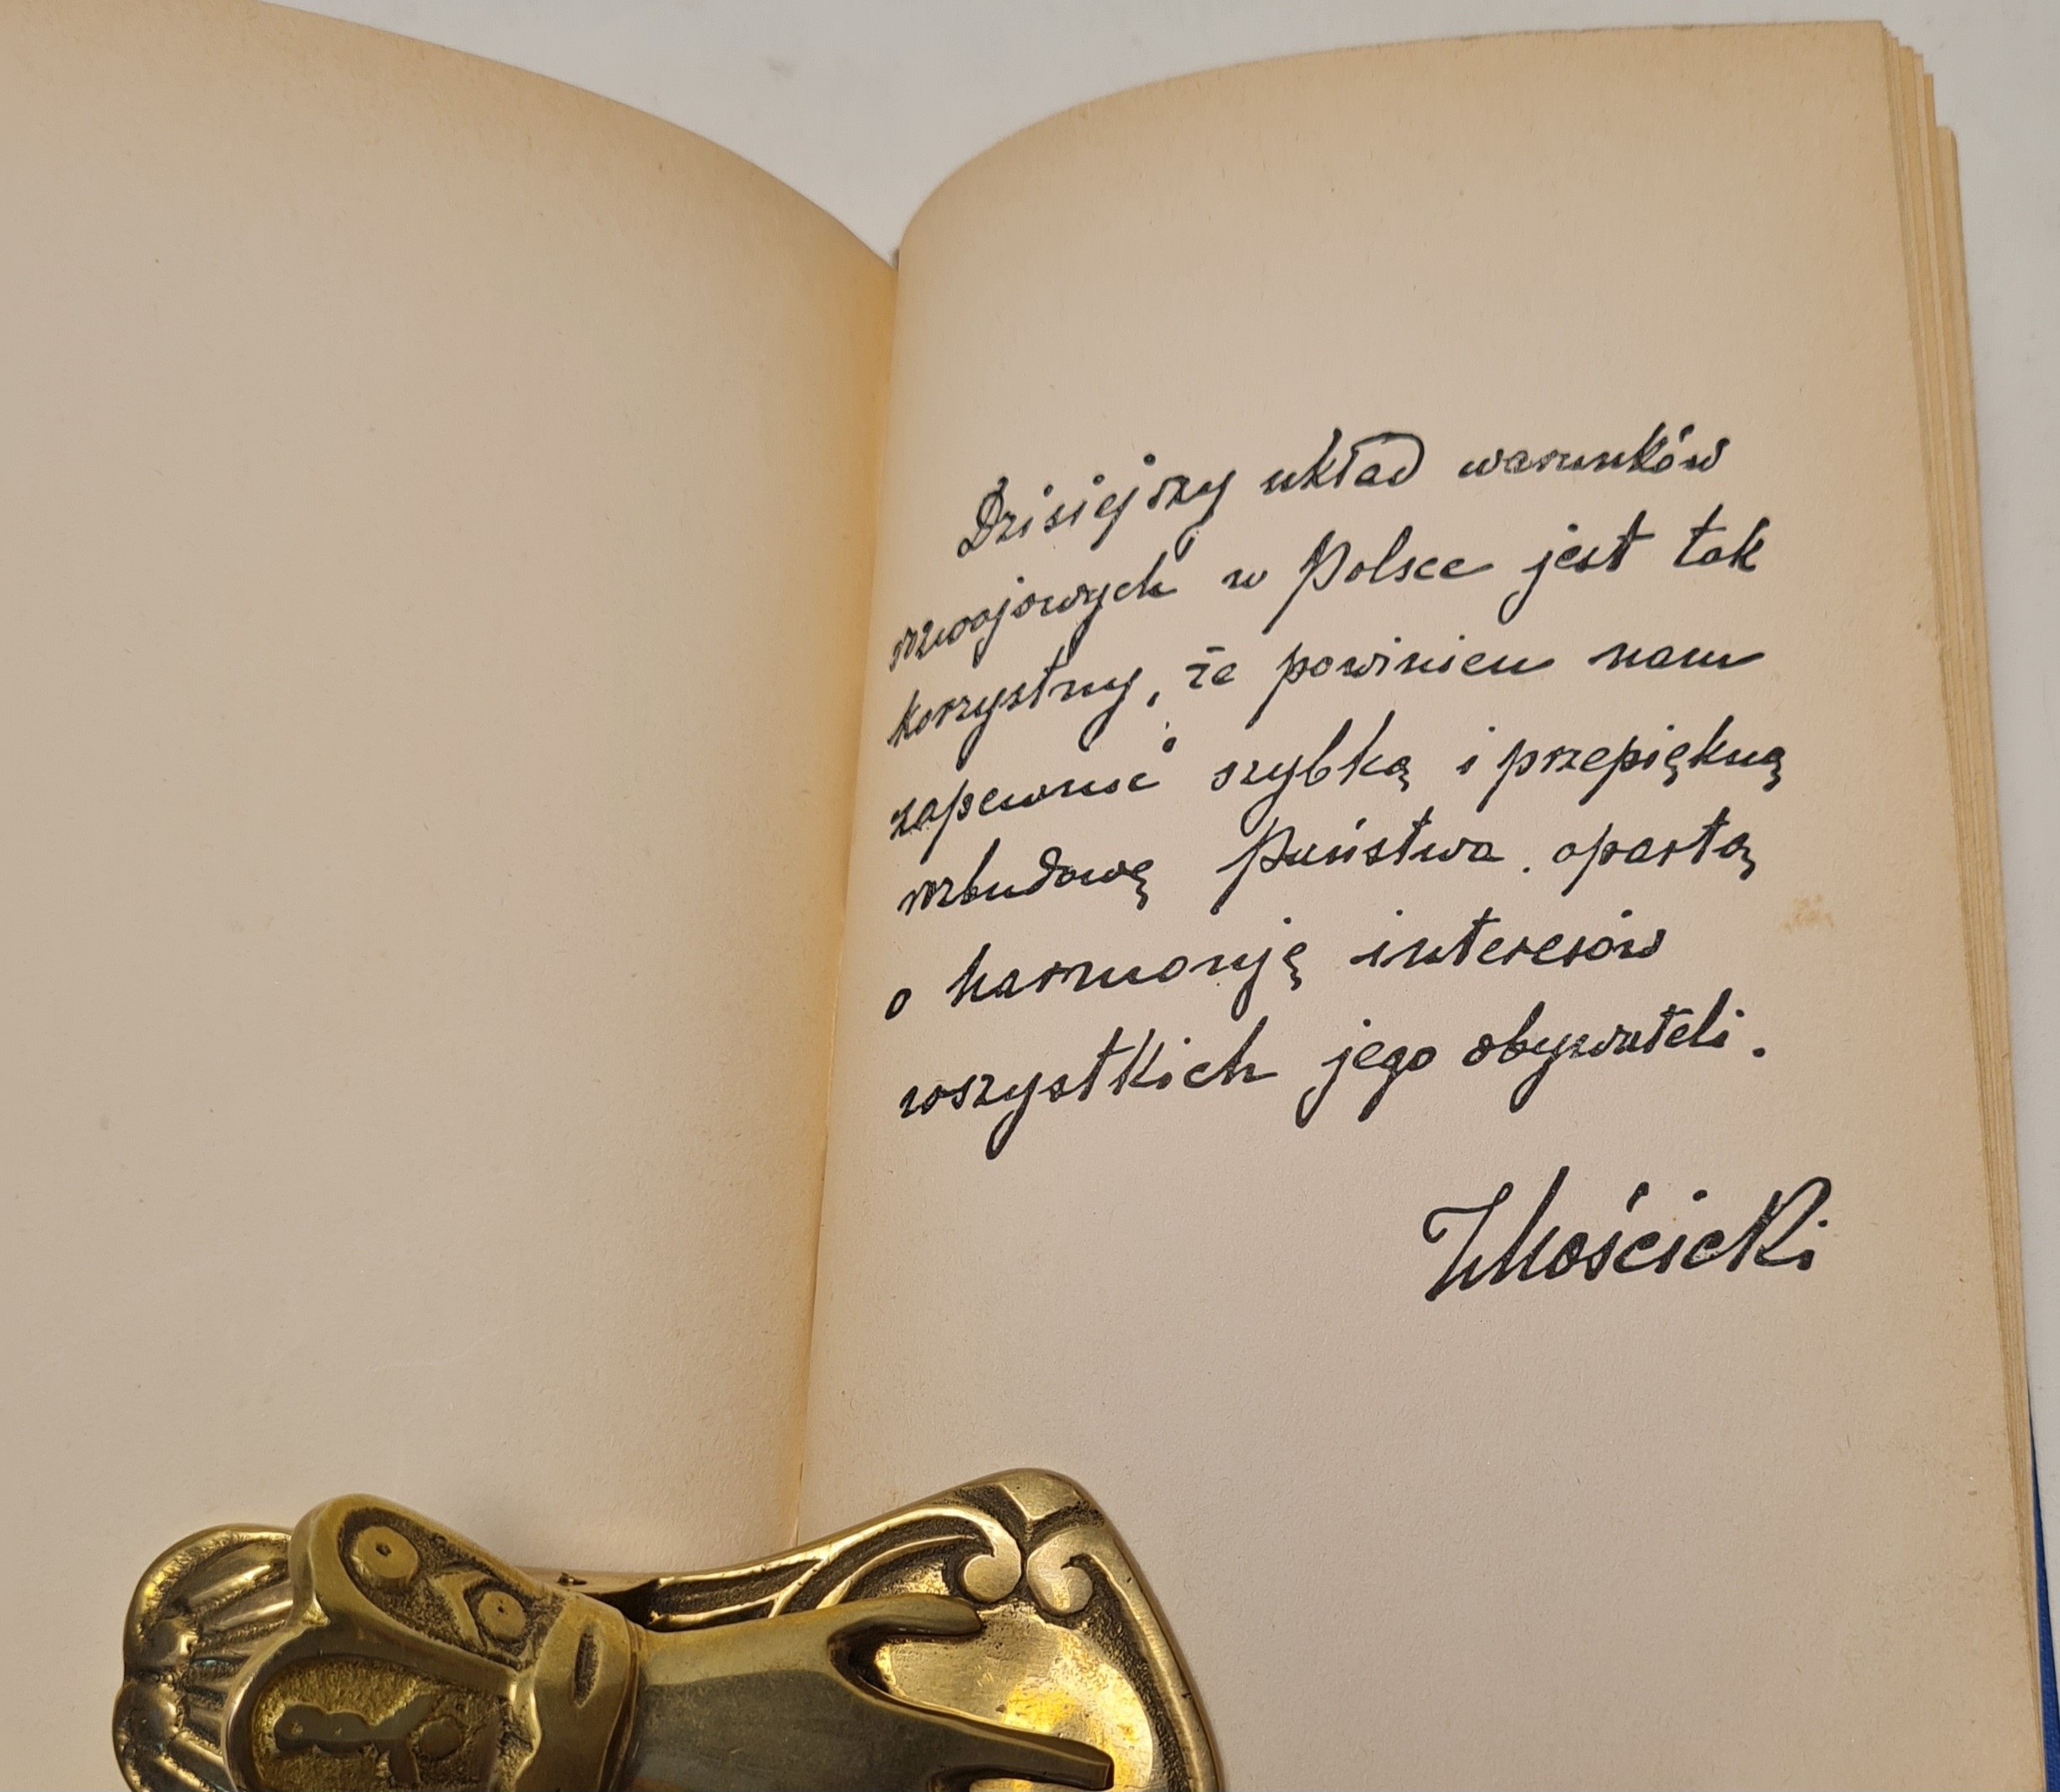 Dzisiejszy układ warunków
rozwojowych w Polsce jest tak
korzystny, że powinien nam
zapewnić szybką i przepiękną
rozbudowę Państwa, opartą
o harmonję interesów
wszystkich jego obywateli.
IMościcki